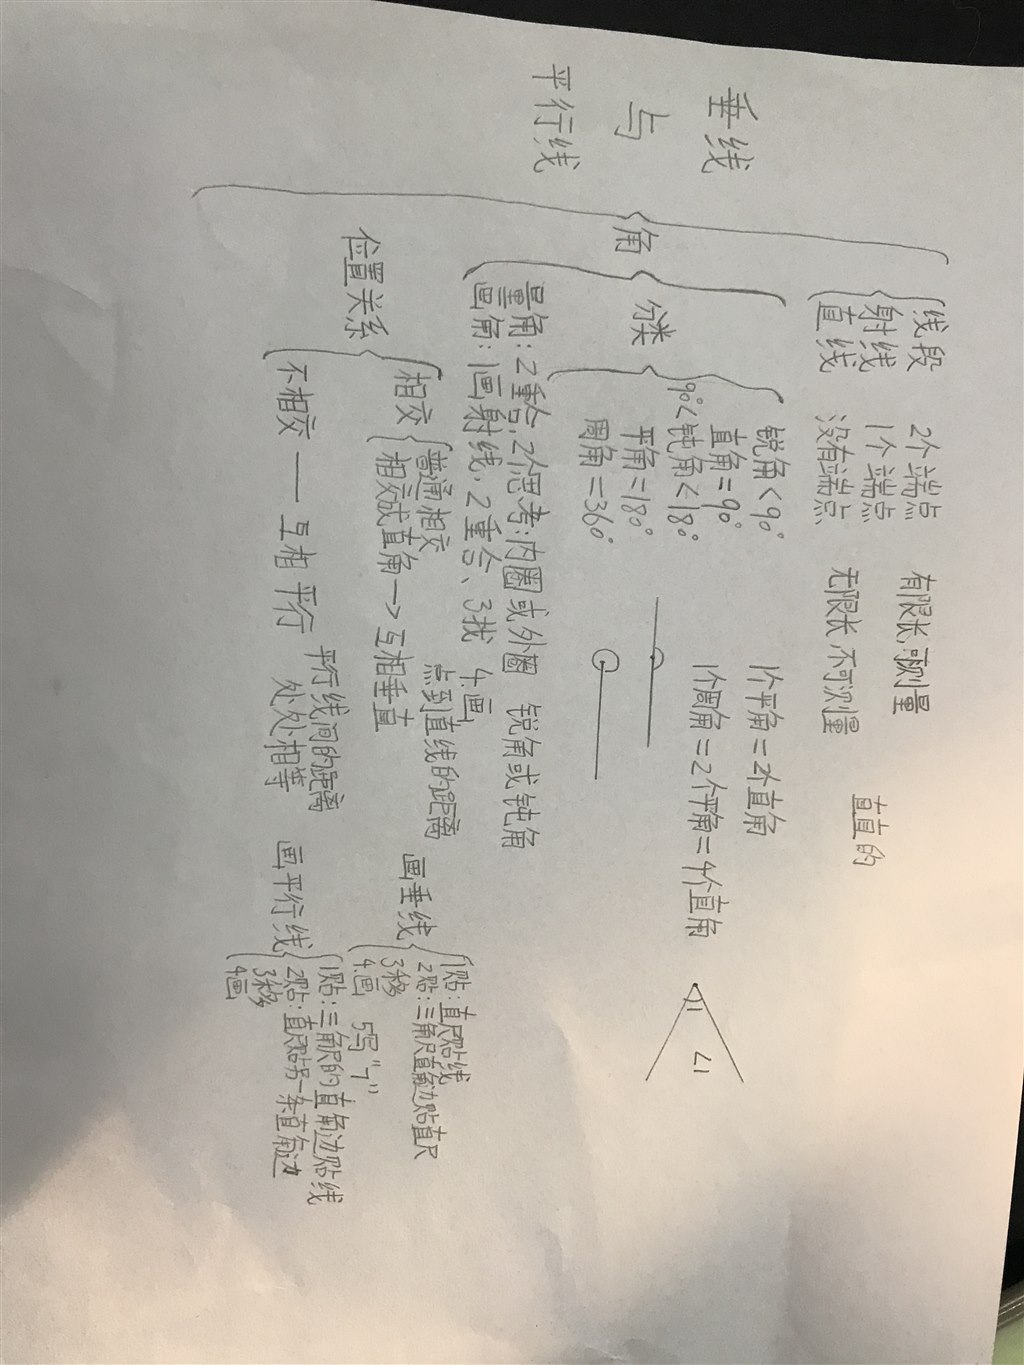 垂线
与
平行线
线段 2个端点 有限长,可测量
射线 1个端点
直线 没有端点 无限长,不可测量
直直的
角
分类
锐角<90°
直角=90°
90°<钝角<180°
平角=180°
周角=360°
1个平角=2个直角
1个周角=2个平角=4个直角
1
∠1
量角:2重合,2个思考:内圈或外圈 锐角或钝角
画角:1画射线,2重合、3找 4.画
位置关系
相交
普通相交
相交成直角→互相垂直
点到直线的距离
画垂线
1贴:直尺贴线
2贴:三角尺直角边贴直尺
3移
4.画 5写“┐”
不相交——互相平行
平行线间的距离
处处相等
画平行线
1贴:三角尺的直角边贴线
2贴:直尺贴另一条直角边
3移
4画